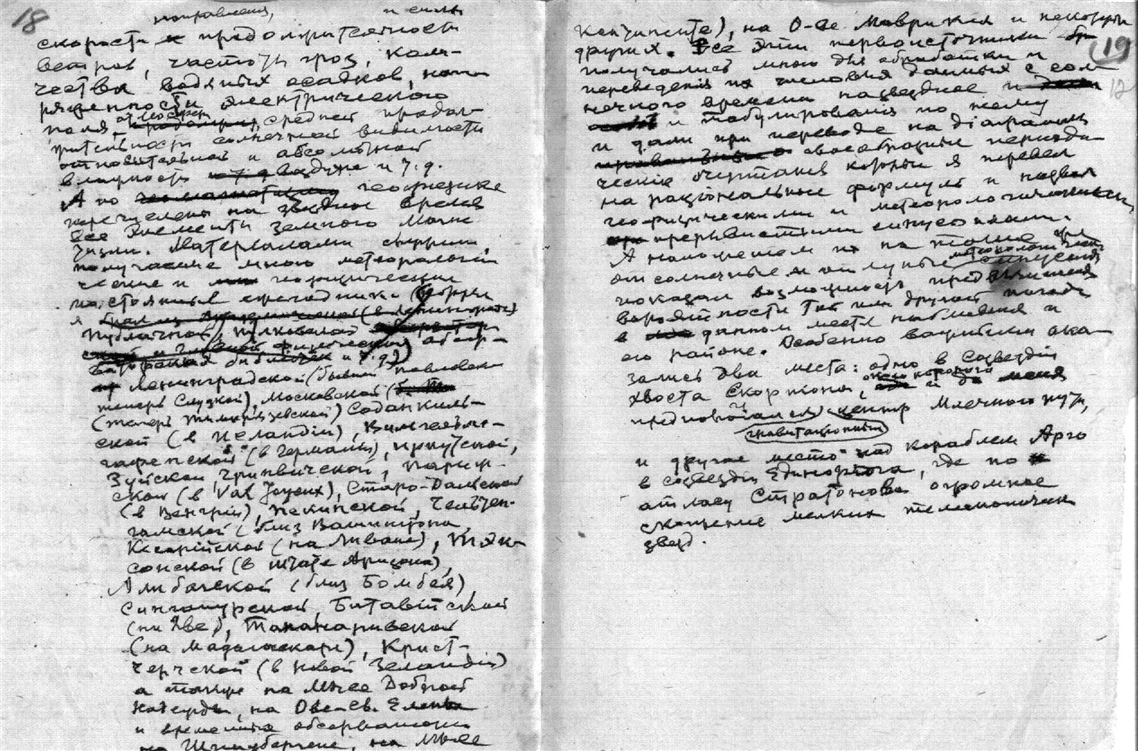 18
направления, и силы
скорости и продолжительности
ветров, частоты гроз, коли-
чества водяных осадков, напря
ряженности электрического
поля атмосферы, средней продол-
жительности солнечной видимости
относительной и абсолютной
влажности воздуха и т. д.
А по геофизике
перечислены на звездное время
все элементы земного магне
тизма. Материалами служили
получаемые мною метеорологи
ческие и
постоянные ежегодники
я
Публичной, Пулковской
библиотек и т. д.)
Ленинградской (бывшей Павловской
теперь Слуцкой), Московской
(теперь Тимирязевской) Соданкиль-
ской (в Лапландии), Вильгельмс-
гафенской (в Германии), Иркутской,
Зуйской, Гринвичской, Париж-
ской (в Val Joyeux), Старо-Дальской
(в Венгрии), Пекинской, Чельтен-
гамской (близ Вашингтона,
Ксарийской (на Ливане), Тук-
сонской (в штате Аризона),
Алибагской (близ Бомбея),
Сингапурской, Батавийской
(на Яве), Тананаривской
(на Мадагаскаре), Крист-
черчской (в Новой Зеландии)
а также на Мысе Доброй
Надежды, на О-ве Св. Елены
и временных обсерваторий
на Шпицбергене, на Мысе
19
12
), на О-ве Маврикия и некоторых
других. Все эти первоисточники
получались мною для обработки и
переведения их числовых данных с сол
нечного времени на звездное и
и табулирования по нему
и дали при переводе на диаграммы
своеобразные периоди
ческие очертания которые я перевел
на рациональные формулы и назвал
геофизическими и метеорологическими
прерывистыми синусоидами.
А наложением их на такие же
от солнечные и от лунные метеорологические синусоиды
показал возможность предвычисления
вероятности той или другой погоды
в данном месте наблюдения и
его районе. Особенно важными ока-
зались два места: одно в Созвездии
Хвоста Скорпиона, около которого и до меня
предполагался центр Млечного пути,
гравитационный
и другое место над кораблем Арго
в созвездии Единорога, где по
атласу Стратонова огромное
скопление мелких телескопических
звезд.